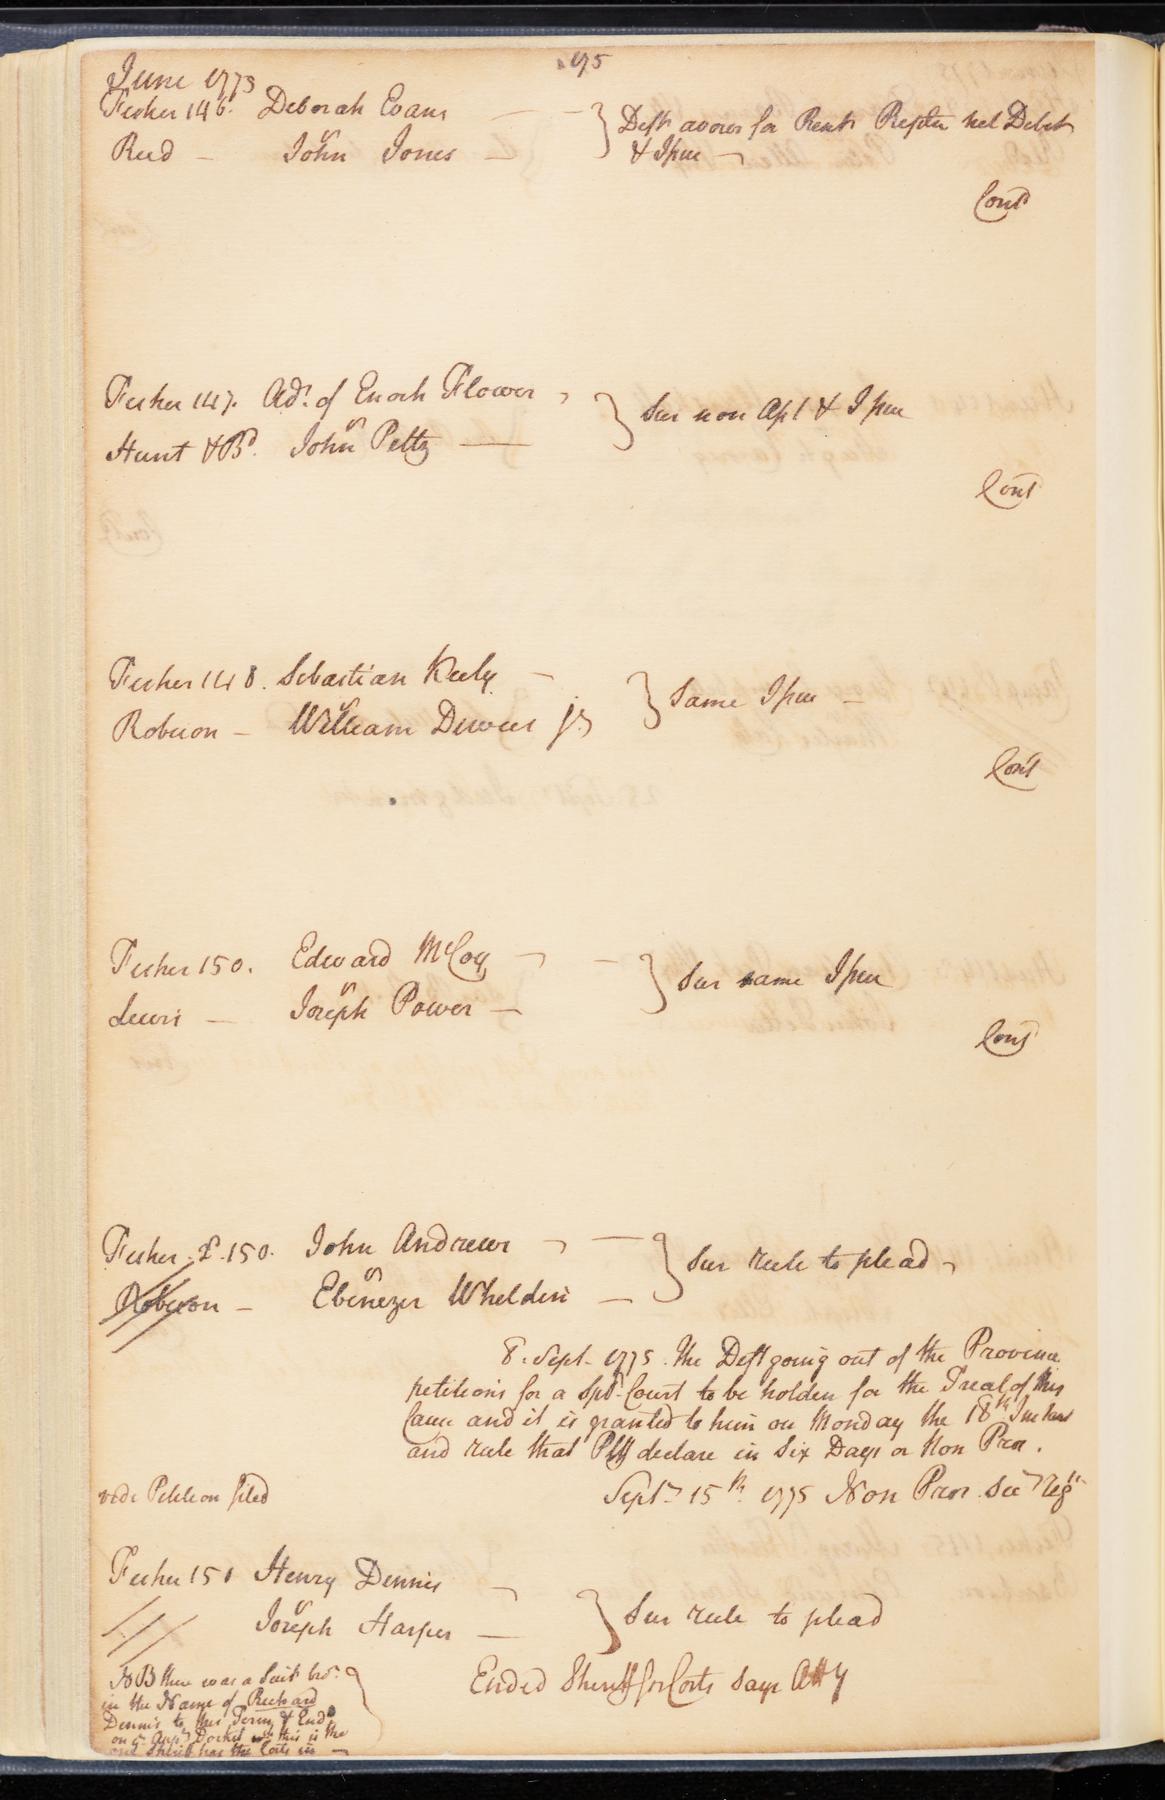 June 1775
195
Fisher 146. Deborah Evans
vs
Reed — John Jones —
} Deft avows for Rent Replēn nil Debet
& Issue
Cont
Fisher 147. Adr. of Enoch Flower
vs
Hunt & Bd. John Peltz —
} Sur non Apt & Issue
Cont
Fisher 148. Sebastian Keely —
vs
Roberson — William Dewees jr
} Same Issue —
Cont
Fisher 150. Edward McCoy —
vs
Lewis — Joseph Power —
} Sur same Issue
Cont
Fisher £.150. John Andrews —
vs
Roberson — Ebenezer Wheldin —
} Sur rule to plead
8. Sept. 1775. The Deft going out of the Province
petitions for a Spl. Court to be holden for the Trial of this
Cause and it is granted to him on Monday the 18th Instant
and rule that Plff declare in Six Days or Non Pros.
vide Petition filed
Sept 15th 1775 Non Pros sec Reg
Fisher 151 Henry Dennis
vs
Joseph Harper —
} Sur rule to plead
Ended Sheriff for Costs says Atty
NB there was a Suit bro.
in the Name of Richard
Dennis to this Term & End
on ye App Docket wth this is the
and Sheriff has the Costs in —